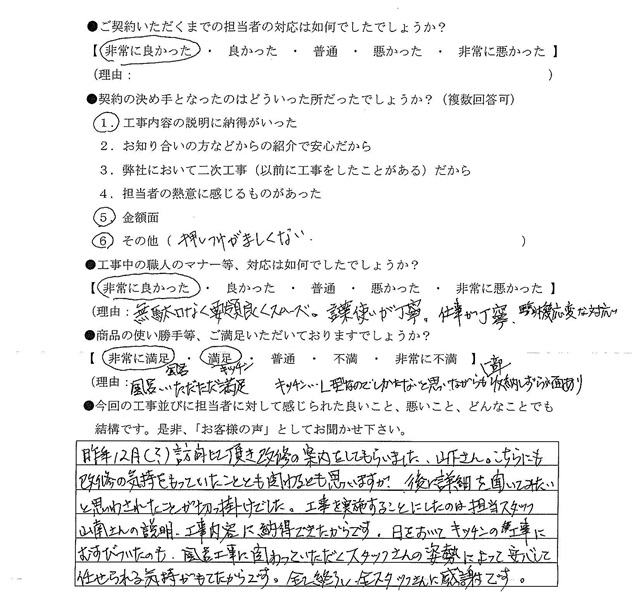 ●ご契約いただくまでの担当者の対応は如何でしたでしょうか?
【 非常に良かった ・ 良かった ・ 普通 ・ 悪かった ・ 非常に悪かった 】
(理由: )
●契約の決め手となったのはどういった所だったでしょうか?(複数回答可)
1.工事内容の説明に納得がいった
2.お知り合いの方などからの紹介で安心だから
3.弊社において二次工事(以前に工事をしたことがある)だから
4.担当者の熱意に感じるものがあった
5.金額面
6.その他( 押しつけがましくない. )
●工事中の職人のマナー等、対応は如何でしたでしょうか?
【 非常に良かった ・ 良かった ・ 普通 ・ 悪かった ・ 非常に悪かった 】
(理由:無駄口なく要領良くスムーズ。言葉使いが丁寧。仕事が丁寧、臨機応変な対応)
●商品の使い勝手等、ご満足いただいておりますでしょうか?
【 非常に満足 ・ 満足 ・ 普通 ・ 不満 ・ 非常に不満 】
風呂 キッチン
(理由: 風呂、いただただ満足 キッチン、L型なのでしかたないと思いながらも収納しずらい面あり
●今回の工事並びに担当者に対して感じられた良いこと、悪いこと、どんなことでも
結構です。是非、「お客様の声」としてお聞かせ下さい。
昨年12月(?)訪問して頂き改修の案内をしてもらいました、山下さん。こちらにも
改修の気持をもっていたこととも関わるとも思いますが、後に詳細を聞いてみたい
と思わされたことが切っ掛けでした。工事を実施することにしたのは担当スタッフ
山南さんの説明、工事内容に納得できたからです。日をおいてキッチンの工事に
むすびついたのも、風呂工事に関わっていただくスタッフさんの姿勢によって安心して
任せられる気持がもてたからです。全て終了し、全スタッフさんに感謝です。